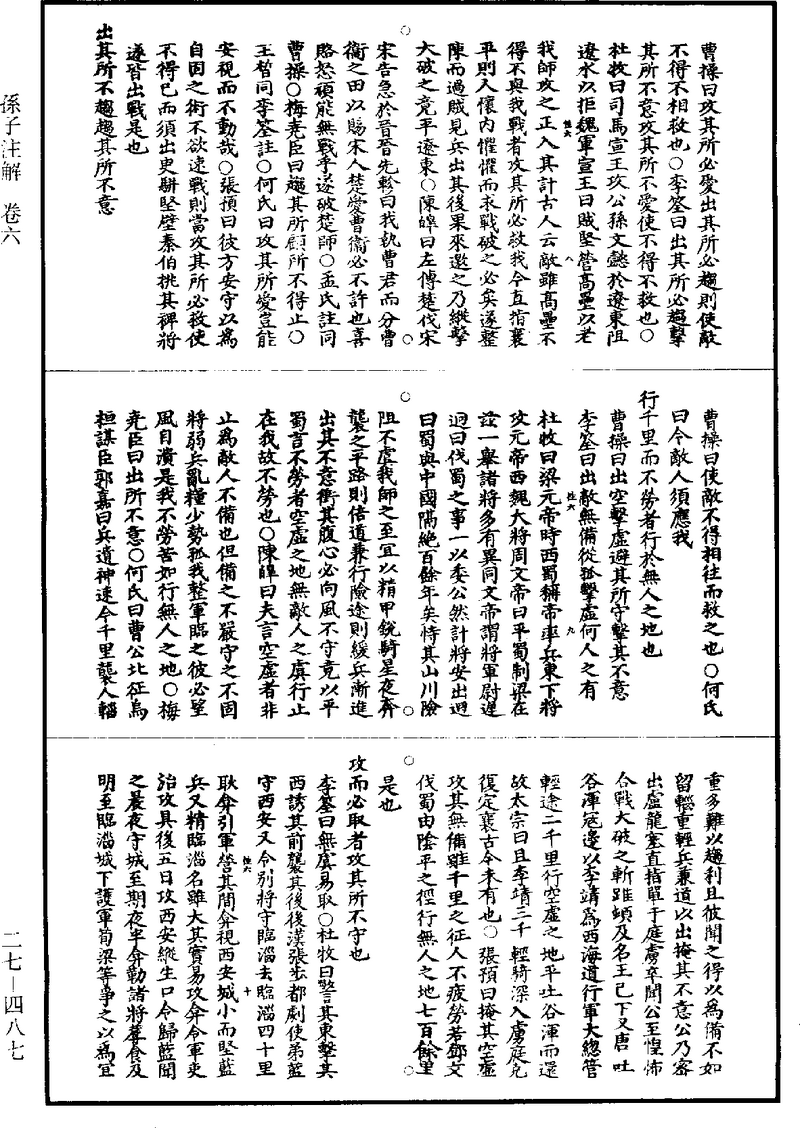 曹操曰攻其所必愛出其所必趨則使敵
不得不相救也○李筌曰出其所必趨擊
其所不意攻其所不愛使不得不救也○
杜牧曰司馬宣王攻公孫文懿於遼東阻
遼水以拒魏軍宣王曰賊堅營高壘以老
我師攻之正入其計古人云敵雖高壘不
得不與我戰者攻其所必救我今直指襄
平則人懷內懼懼而求戰破之必矣遂整
陳而過賊見兵出其後果來邀之乃縱擊
大破之竟平遼東○陳皥曰左傳楚伐宋
宋告急於晉晉先軫曰我執曹君而分曹
衞之田以賜宋人楚愛曹衞必不許也喜
賂怒頑能無戰乎遂破楚師○孟氏註同
曹操○梅堯臣曰趨其所顧所不得止○
王晳同李筌註○何氏曰攻其所愛豈能
安視而不動哉○張預曰彼方安守以爲
自固之術不欲速戰則當攻其所必救使
不得已而須出史駢堅壁秦伯挑其裨將
遂皆出戰是也
出其所不趨趨其所不意
曹操曰使敵不得相往而救之也○何氏
曰令敵人須應我
行千里而不勞者行於無人之地也
曹操曰出空擊虛避其所守擊其不意
李筌曰出敵無備從孤擊虛何人之有
杜牧曰梁元帝時西蜀稱帝率兵東下將
攻元帝西魏大將周文帝曰平蜀制梁在
茲一舉諸將多有異同文帝謂將軍尉遲
迥曰伐蜀之事一以委公然計將安出迥
曰蜀與中國隔絕百餘年矣恃其山川險
阻不虞我師之至宜以精甲銳騎星夜奔
襲之平路則倍道兼行險途則緩兵漸進
出其不意衝其腹心必向風不守竟以平
蜀言不勞者空虛之地無敵人之虞行止
在我故不勞也○陳皥曰夫言空虛者非
止爲敵人不備也但備之不嚴守之不固
將弱兵亂糧少勢孤我整軍臨之彼必望
風自潰是我不勞苦如行無人之地○梅
堯臣曰出所不意○何氏曰曹公北征烏
桓謀臣郭嘉曰兵遺神速今千里襲人輜
重多難以趨利且彼聞之得以爲備不如
留輜重輕兵兼道以出掩其不意公乃密
出盧龍塞直指單于庭虜卒聞公至惶怖
合戰大破之斬蹋頓及名王已下又唐吐
谷渾寇邊以李靖爲西海道行軍大總管
輕途二千里行空虛之地平吐谷渾而還
故太宗曰且李靖三千輕騎深入虜庭克
復定襄古今未有也○張預曰掩其空虛
攻其無備雖千里之征人不疲勞若鄧文
伐蜀由陰平之徑行無人之地七百餘里
是也
攻而必取者攻其所不守也
李筌曰無虞易取○杜牧曰警其東擊其
西誘其前襲其後後漢張步都劇使弟藍
守西安又令別將守臨淄去臨淄四十里
耿弇引軍營其間弇視西安城小而堅藍
兵又精臨淄名雖大其實易攻弇令軍吏
治攻具後五日攻西安縱生口令歸藍聞
之晨夜守城至期夜半弇勒諸將蓐食及
明至臨淄城下護軍荀梁等爭之以爲宜
孫子注解 卷六
二七－四八七